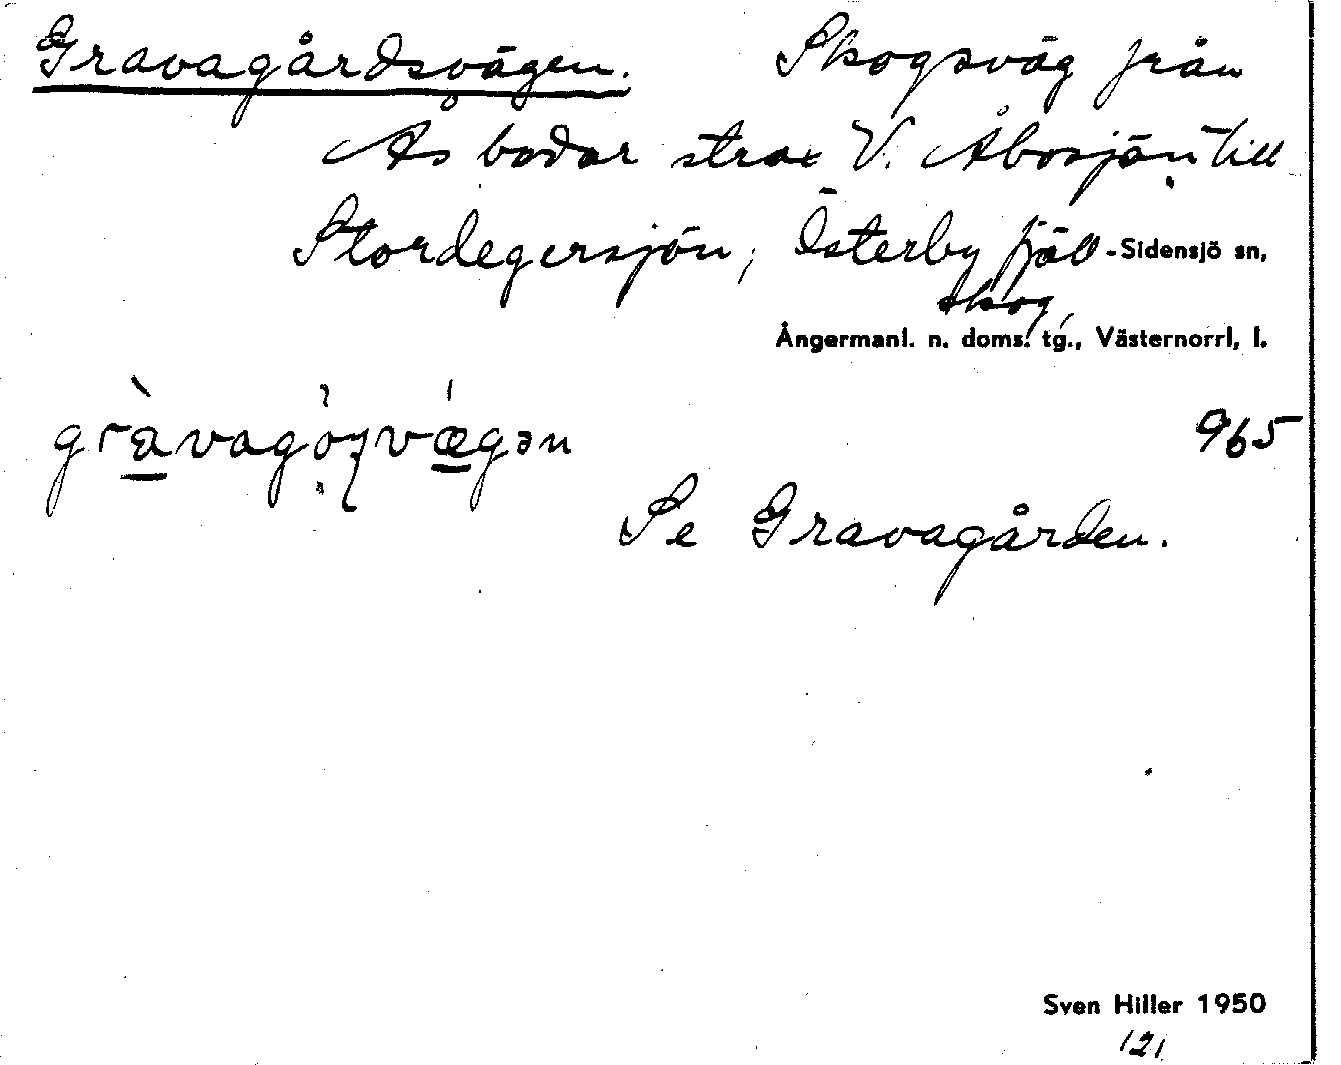 Gravagårdsvägen. Skogsväg från
Ås bodar strax V. Åbosjön till
Stordegersjön; Österby fjäll-Sidensjö sn,
skog,
Ångermanl. n. doms. tg., Västernorrl, l.
965
Se Gravagården.
Sven Hiller 1950
121